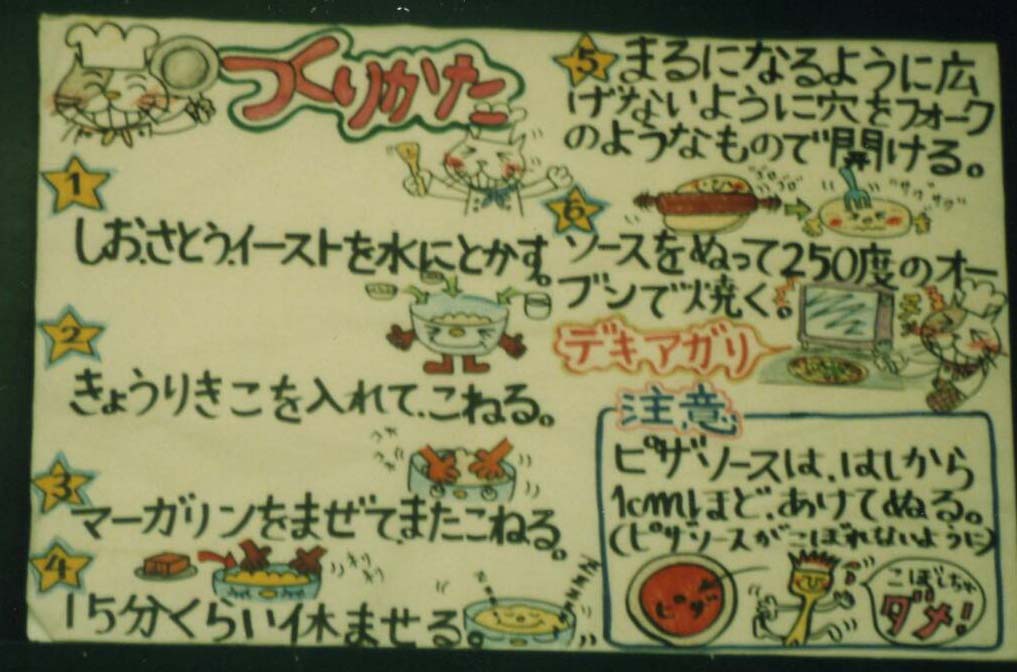 つくりかた
1
しお、さとう、イーストを水にとかす。
2
きょうりきこを入れて、こねる。
3
マーガリンをまぜてまたこねる。
4
15分くらい休ませる。
5 まるになるように広
げないように穴をフォーク
のようなもので開ける。
ゴロゴロ
6
ソースをぬって250度のオー
ブンで焼く。
デキアガリ
注意
ピザソースは、はしから
1cmほど、あけてぬる。
(ピザソースがこぼれないように)
ピザ
こぼしちゃ
ダメ!